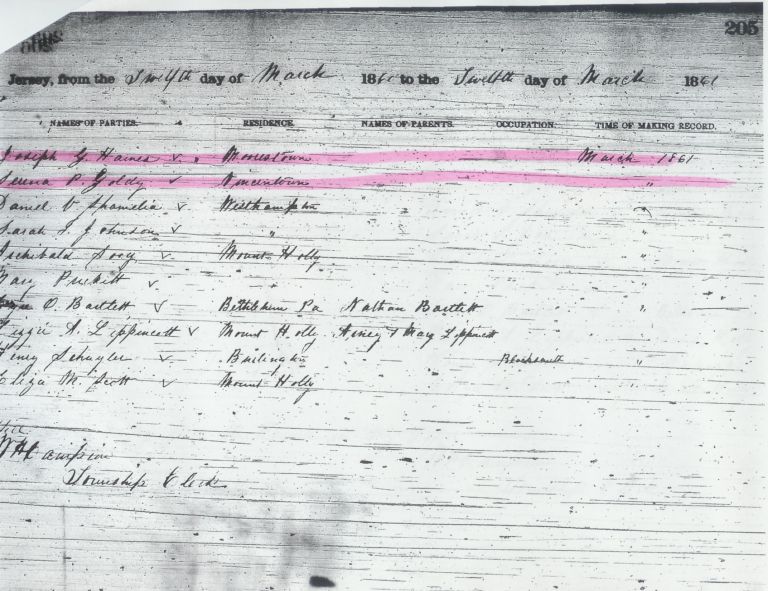 205
Jersey, from the Twelfth day of March 1860 to the Twelfth day of March 1861
NAMES OF PARTIES. RESIDENCE. NAMES OF PARENTS. OCCUPATION. TIME OF MAKING RECORD.
Joseph G. Haines Moorestown March 1861
P. Goldy Vincentown "
Daniel V. Westhampton "
Sarah J. Johnson " "
Archibald Mount Holly "
Mary Puckett "
O. Bartlett Bethlehem Pa Nathan Bartlett "
Lizzie A. Lippincott Mount Holly & Mary Lippincott
Henry Schuyler Burlington Blacksmith "
Eliza M. Scott Mount Holly
Township Clerk